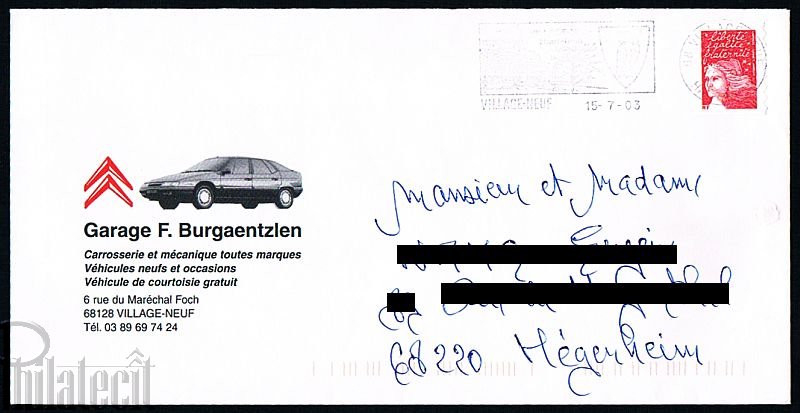 VILLAGE-NEUF 15-7-03
liberté
égalité
fraternité
Garage F. Burgaentzlen
Carrosserie et mécanique toutes marques
Véhicules neufs et occasions
Véhicule de courtoisie gratuit
6 rue du Maréchal Foch
68128 VILLAGE-NEUF
Tél. 03 89 69 74 24
Monsieur et Madame
68220 Hégenheim
Philatecit